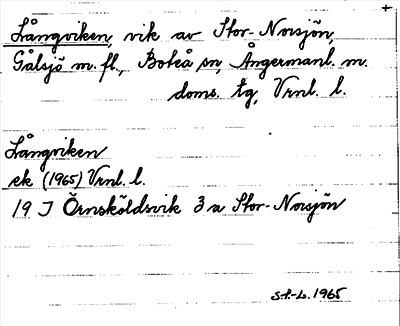 Långviken, vik av Stor-Norsjön,
Gålsjö m.fl., Boteå sn, Ångermanl. m.
doms. tg, Vrnl. l.
Långviken
ek (1965) Vrnl. l.
19 J Örnsköldsvik 3 a Stor-Norsjön
S.P.-L. 1965